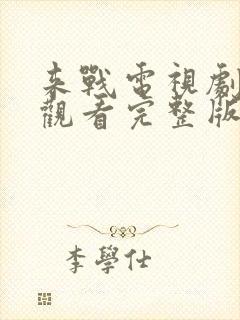 来戰電視劇
觀看完整版
李學仕